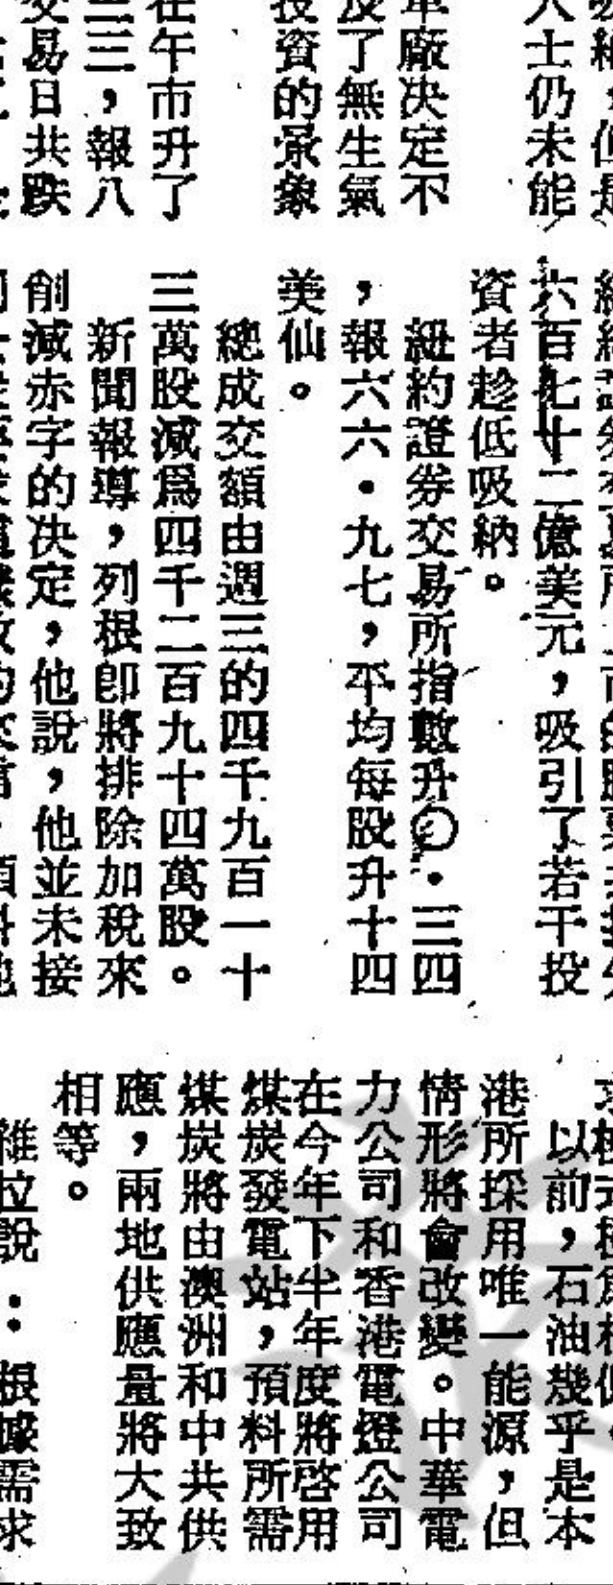 人士仍未能
車廠決定不
反了無生氣
投資的景象
在午市升了
三三，報八
交易日共跌
六百七十二億美元，吸引了若干投
資者趁低吸納。
紐約證券交易所指數升〇・三四
，報六六・九七，平均每股升十四
美仙。
總成交額由週三的四千九百一十
三萬股減爲四千二百九十四萬股。
新聞報導，列根即將排除加稅來
削減赤字的決定，他說，他並未接
以前，石油幾乎是本
港所採用唯一能源，但
情形將會改變。中華電
力公司和香港電燈公司
在今年下半年度將啓用
煤炭發電站，預料所需
煤炭將由澳洲和中共供
應，兩地供應量將大致
相等。
維拉說：根據需求